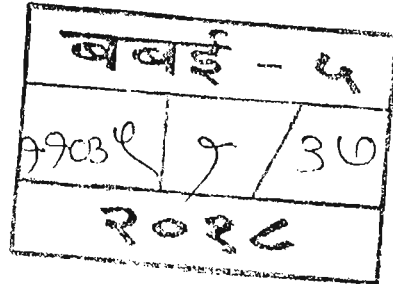 बबई - ५
११०३५ १ / ३७
२०१८